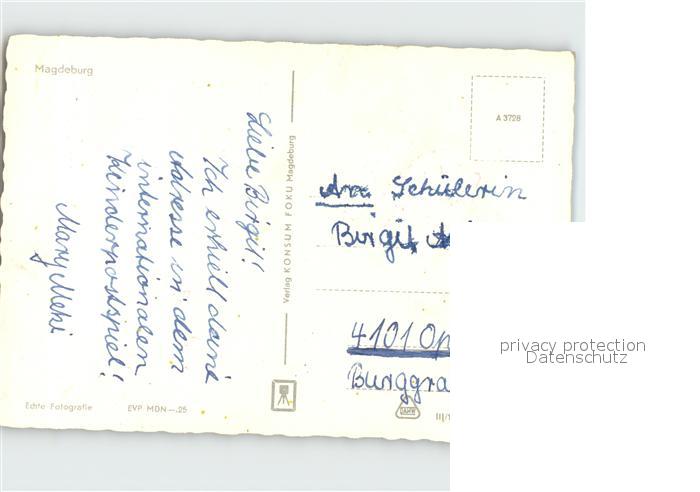 Magdeburg
Liebe Birgit!
Ich erhielt deine
Adresse in dem
internationalen
Kinderpostspiel!
Mary Mehi
Echte Fotografie
EVP MDN —.25
Verlag KONSUM FOKU Magdeburg
A 3728
An Schülerin
Birgit
4101 Op
Burggra
III/1
privacy protection
Datenschutz